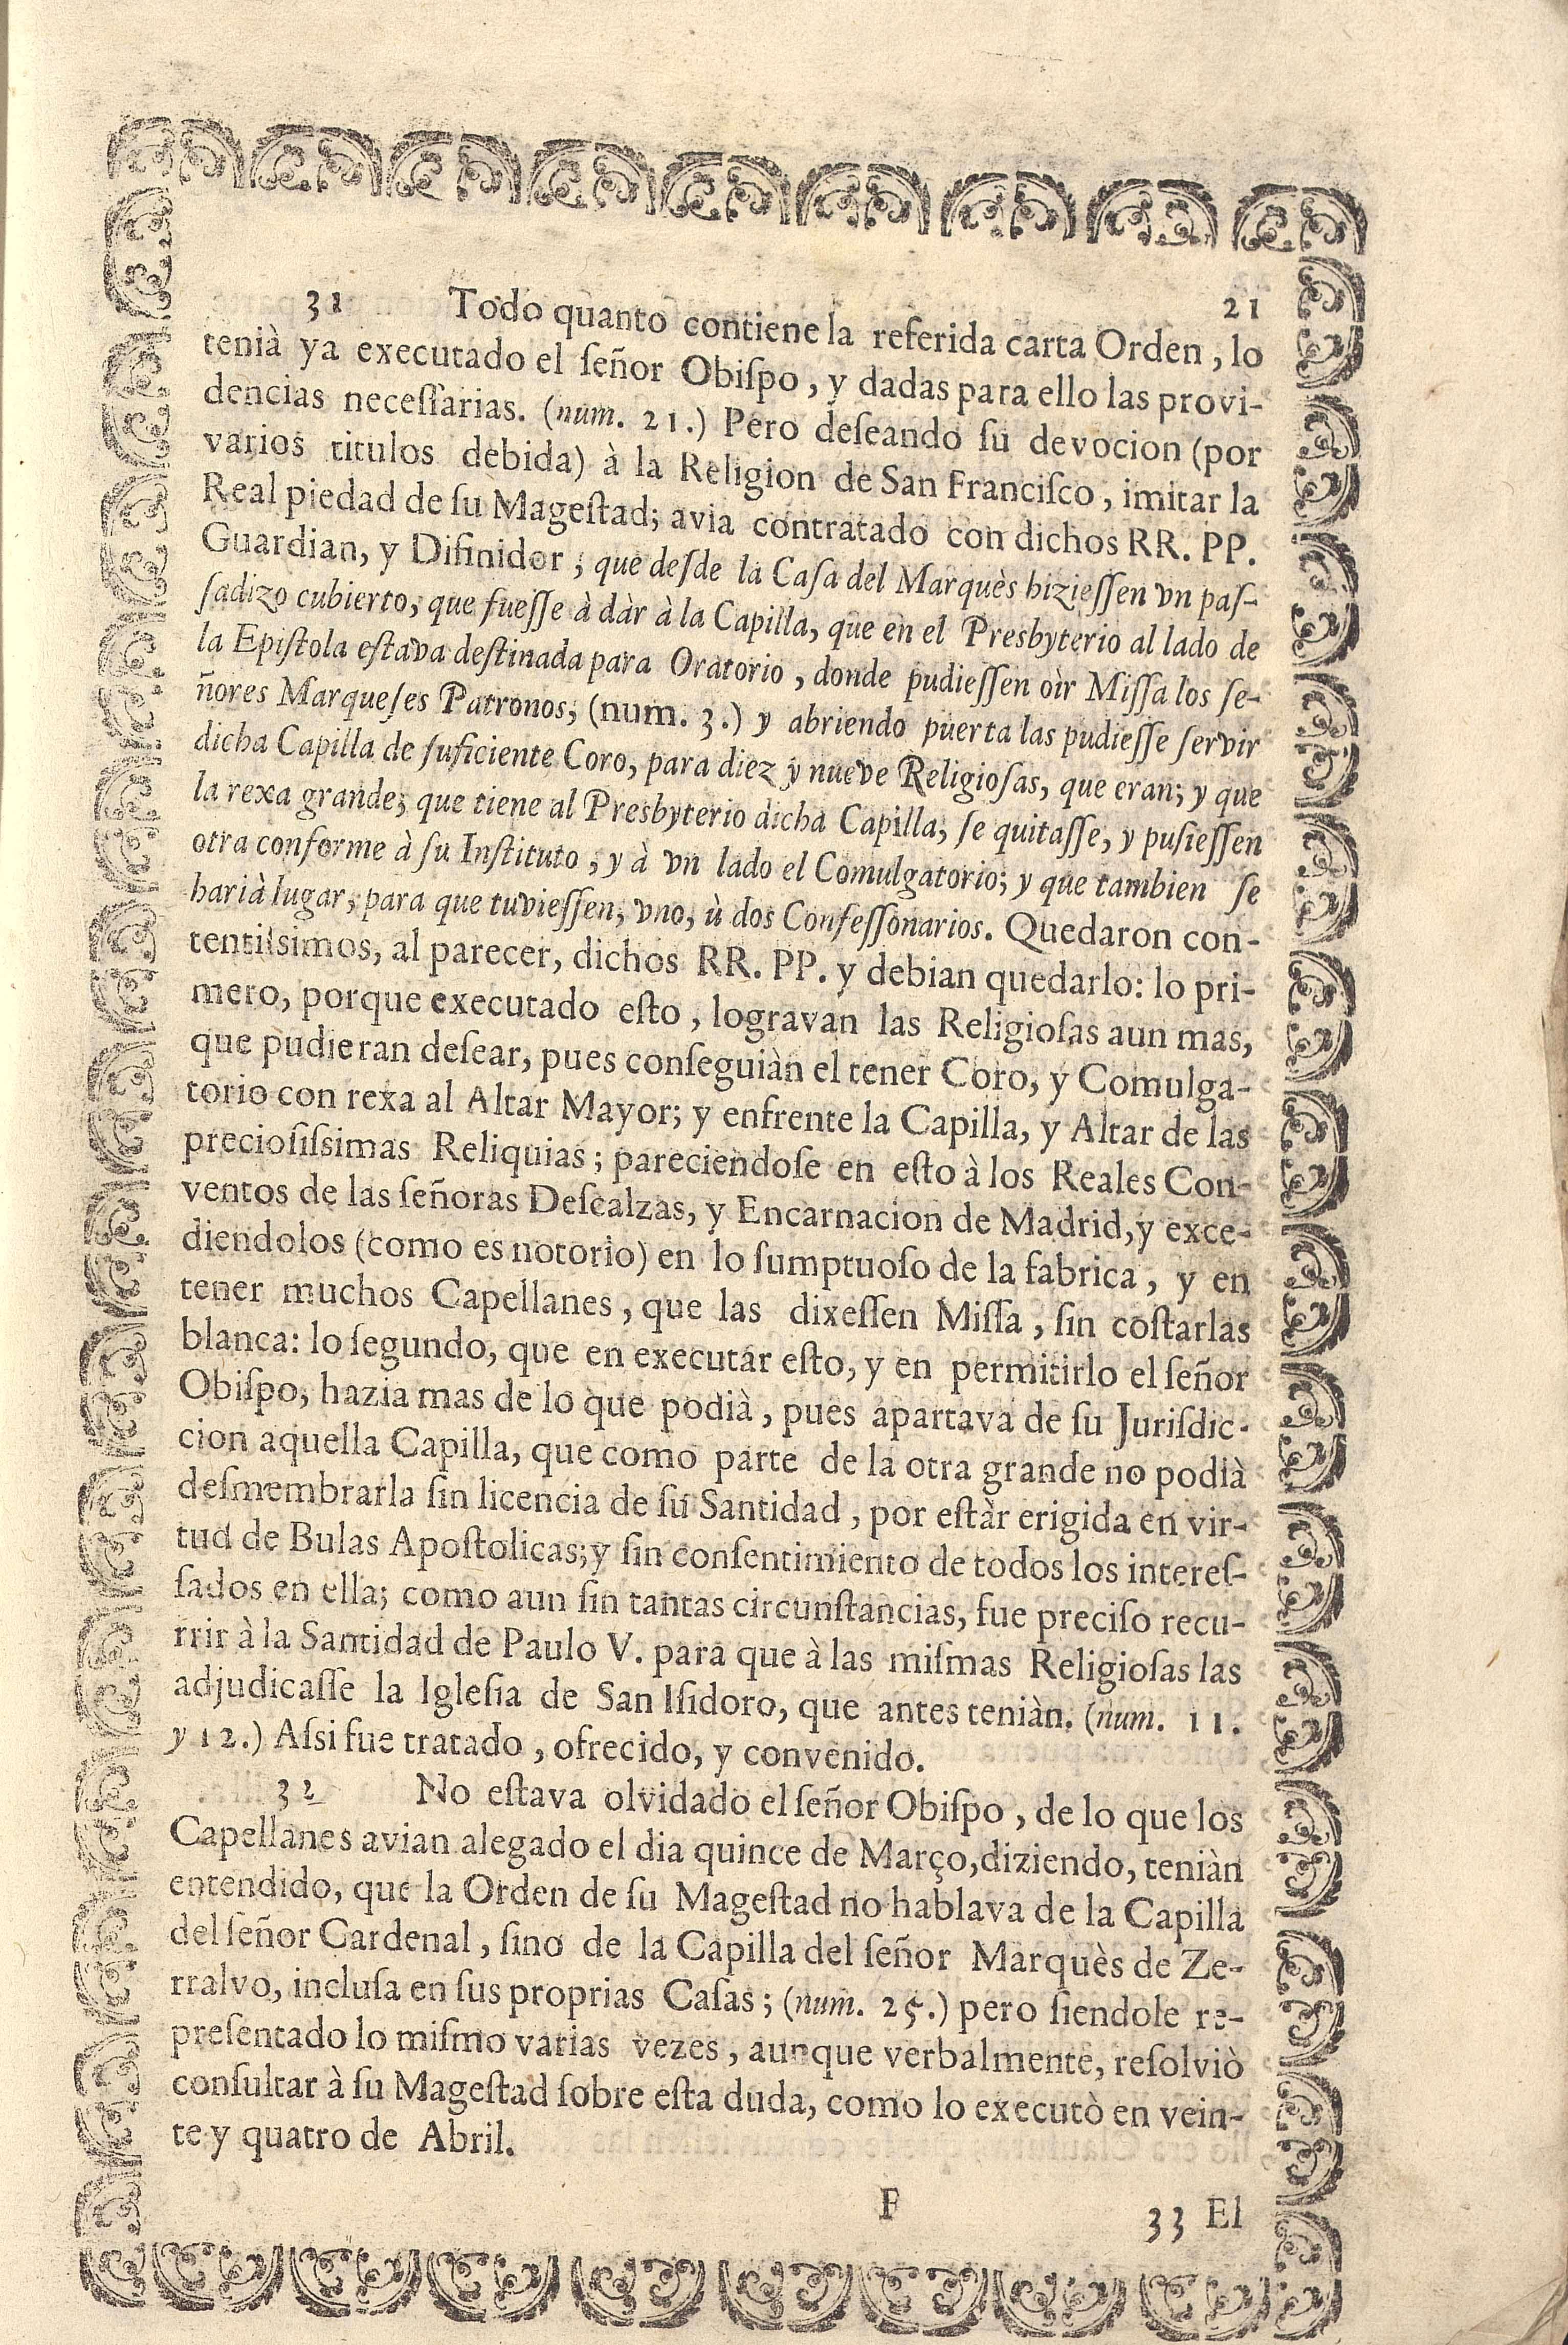 21
31 Todo quanto contiene la referida carta Orden, lo
tenià ya executado el ſeñor Obiſpo, y dadas para ello las provi-
dencias neceſſarias. (num. 21.) Pero deſeando ſu devocion (por
varios titulos debida) à la Religion de San Franciſco, imitar la
Real piedad de ſu Mageſtad; avia contratado con dichos RR. PP.
Guardian, y Difinidor; que deſde la Caſa del Marquès hizieſſen vn paſ-
ſadizo cubierto, que fueſſe à dàr à la Capilla, que en el Presbyterio al lado de
la Epiſtola eſtava deſtinada para Oratorio, donde pudieſſen oìr Miſſa los ſe-
ñores Marqueſes Patronos, (num. 3.) y abriendo puerta las pudieſſe ſervir
dicha Capilla de ſuficiente Coro, para diez y nueve Religioſas, que eran; y que
la rexa grande; que tiene al Presbyterio dicha Capilla, ſe quitaſſe, y puſieſſen
otra conforme à ſu Inſtituto, y à vn lado el Comulgatorio; y que tambien ſe
harià lugar, para que tuvieſſen, vno, ù dos Confeſſonarios. Quedaron con-
tentiſsimos, al parecer, dichos RR. PP. y debian quedarlo: lo pri-
mero, porque executado eſto, logravan las Religioſas aun mas,
que pudieran deſear, pues conſeguiàn el tener Coro, y Comulga-
torio con rexa al Altar Mayor; y enfrente la Capilla, y Altar de las
precioſiſsimas Reliquias; pareciendoſe en eſto à los Reales Con-
ventos de las ſeñoras Deſcalzas, y Encarnacion de Madrid, y exce-
diendolos (como es notorio) en lo ſumptuoſo de la fabrica, y en
tener muchos Capellanes, que las dixeſſen Miſſa, ſin coſtarlas
blanca: lo ſegundo, que en executar eſto, y en permitirlo el ſeñor
Obiſpo, hazia mas de lo que podià, pues apartava de ſu Juriſdic-
cion aquella Capilla, que como parte de la otra grande no podià
deſmembrarla ſin licencia de ſu Santidad, por eſtàr erigida en vir-
tud de Bulas Apoſtolicas; y ſin conſentimiento de todos los intereſ-
ſados en ella; como aun ſin tantas circunſtancias, fue preciſo recu-
rrir à la Santidad de Paulo V. para que à las miſmas Religioſas las
adjudicaſſe la Igleſia de San Iſidoro, que antes teniàn. (num. 11.
y 12.) Aſsi fue tratado, ofrecido, y convenido.
32 No eſtava olvidado el ſeñor Obiſpo, de lo que los
Capellanes avian alegado el dia quince de Março, diziendo, teniàn
entendido, que la Orden de ſu Mageſtad no hablava de la Capilla
del ſeñor Cardenal, ſino de la Capilla del ſeñor Marquès de Ze-
rralvo, incluſa en ſus proprias Caſas; (num. 25.) pero ſiendole re-
preſentado lo miſmo varias vezes, aunque verbalmente, reſolviò
conſultar à ſu Mageſtad ſobre eſta duda, como lo executò en vein-
te y quatro de Abril.
F 33 El